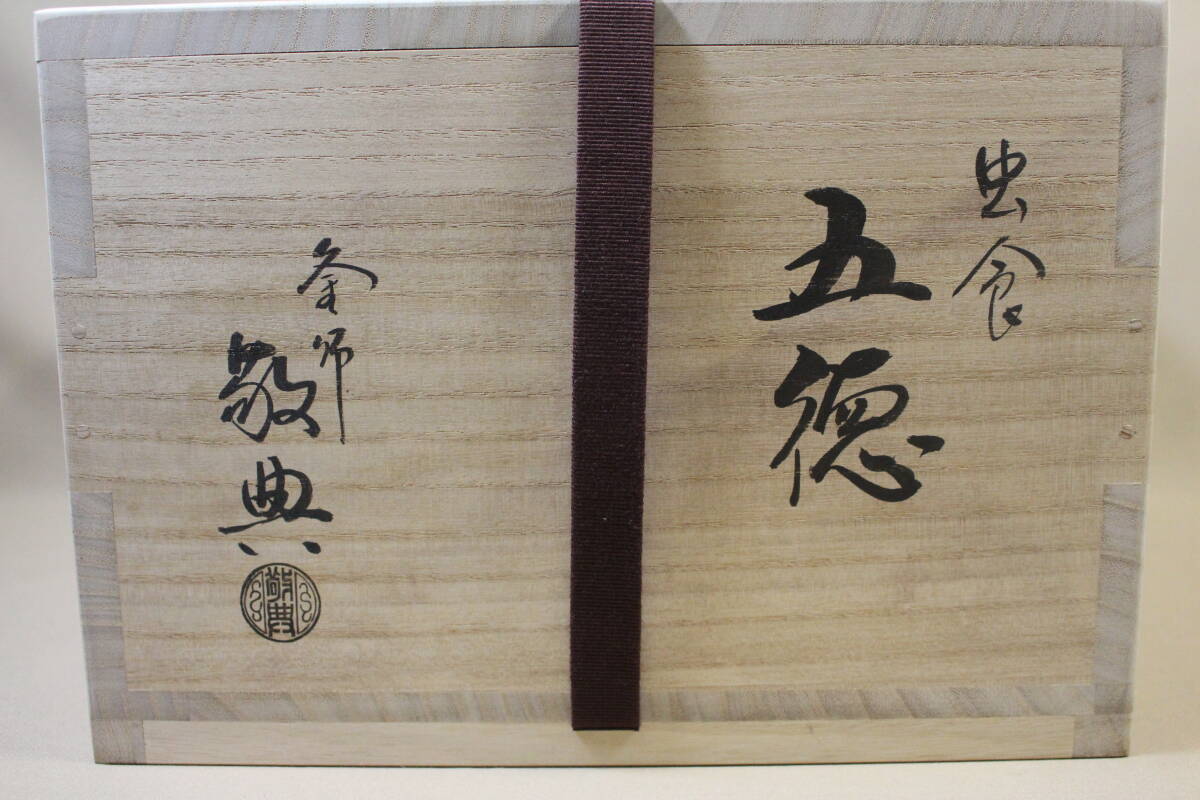 虫食
五徳
釜師
敬典
敬典